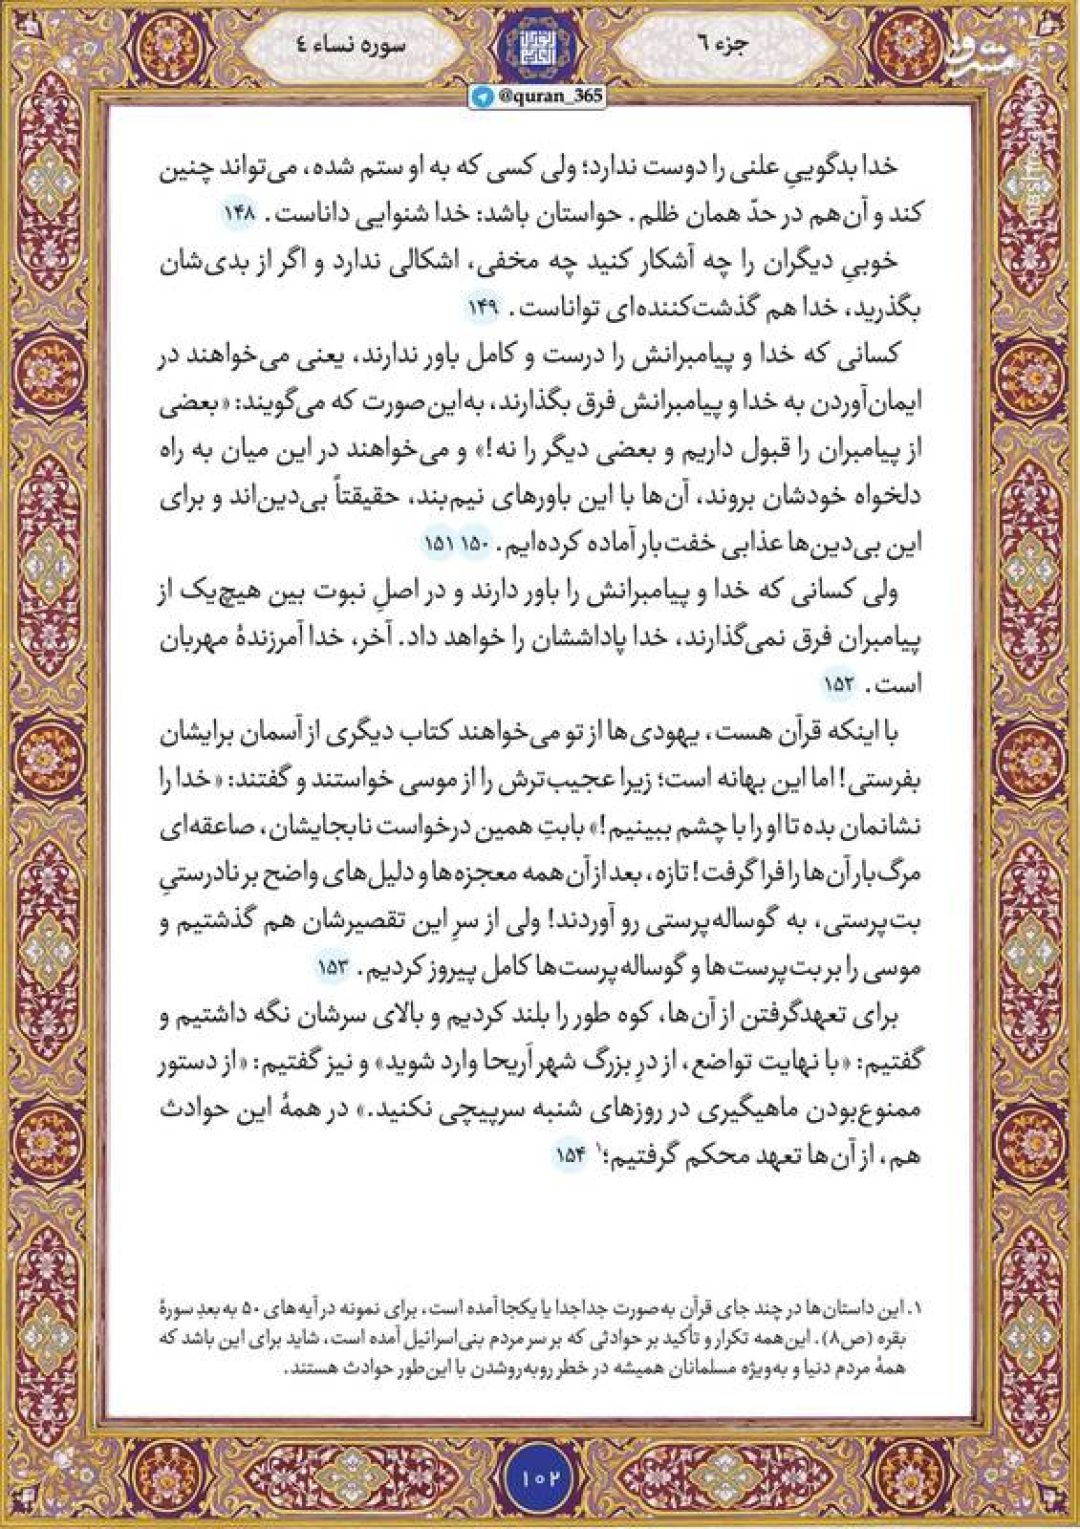 جزء ٦
سوره نساء ٤
مشرق
mashreghnews.ir
@quran_365
خدا بدگوییِ علنی را دوست ندارد؛ ولی کسی که به او ستم شده، می‌تواند چنین
کند و آن‌هم در حدّ همان ظلم. حواستان باشد: خدا شنوایی داناست. ۱۴۸
خوبیِ دیگران را چه آشکار کنید چه مخفی، اشکالی ندارد و اگر از بدی‌شان
بگذرید، خدا هم گذشت‌کننده‌ای تواناست. ۱۴۹
کسانی که خدا و پیامبرانش را درست و کامل باور ندارند، یعنی می‌خواهند در
ایمان‌آوردن به خدا و پیامبرانش فرق بگذارند، به‌این‌صورت که می‌گویند: «بعضی
از پیامبران را قبول داریم و بعضی دیگر را نه!» و می‌خواهند در این میان به راه
دلخواه خودشان بروند، آن‌ها با این باورهای نیم‌بند، حقیقتاً بی‌دین‌اند و برای
این بی‌دین‌ها عذابی خفت‌بار آماده کرده‌ایم. ۱۵۰ ۱۵۱
ولی کسانی که خدا و پیامبرانش را باور دارند و در اصلِ نبوت بین هیچ‌یک از
پیامبران فرق نمی‌گذارند، خدا پاداششان را خواهد داد. آخر، خدا آمرزندهٔ مهربان
است. ۱۵۲
با اینکه قرآن هست، یهودی‌ها از تو می‌خواهند کتاب دیگری از آسمان برایشان
بفرستی! اما این بهانه است؛ زیرا عجیب‌ترش را از موسی خواستند و گفتند: «خدا را
نشانمان بده تا او را با چشم ببینیم!» بابتِ همین درخواست نابجایشان، صاعقه‌ای
مرگ‌بار آن‌ها را فرا گرفت! تازه، بعد از آن همه معجزه‌ها و دلیل‌های واضح بر نادرستیِ
بت‌پرستی، به گوساله‌پرستی رو آوردند! ولی از سرِ این تقصیرشان هم گذشتیم و
موسی را بر بت‌پرست‌ها و گوساله‌پرست‌ها کامل پیروز کردیم. ۱۵۳
برای تعهدگرفتن از آن‌ها، کوه طور را بلند کردیم و بالای سرشان نگه داشتیم و
گفتیم: «با نهایت تواضع، از درِ بزرگ شهر اَریحا وارد شوید» و نیز گفتیم: «از دستور
ممنوع‌بودن ماهیگیری در روزهای شنبه سرپیچی نکنید.» در همهٔ این حوادث
هم، از آن‌ها تعهد محکم گرفتیم؛۱ ۱۵۴
۱. این داستان‌ها در چند جای قرآن به‌صورت جداجدا یا یکجا آمده است، برای نمونه در آیه‌های ۵۰ به بعدِ سورهٔ
بقره (ص۸). این‌همه تکرار و تأکید بر حوادثی که بر سر مردم بنی‌اسرائیل آمده است، شاید برای این باشد که
همهٔ مردم دنیا و به‌ویژه مسلمانان همیشه در خطر روبه‌روشدن با این‌طور حوادث هستند.
۱۰۲